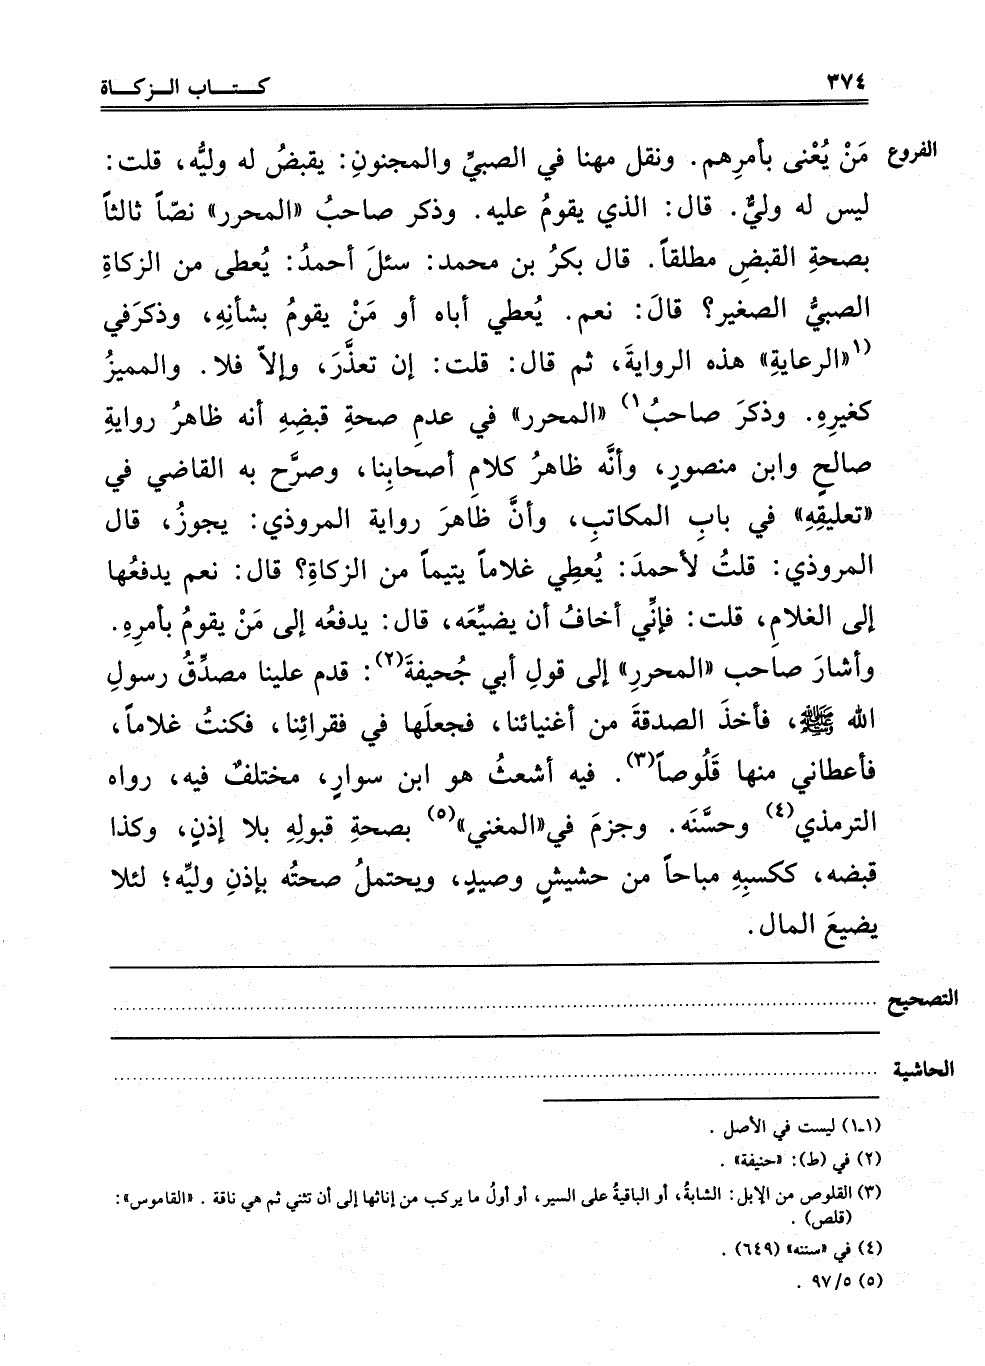 ٣٧٤
كـتـاب الـزكـاة
الفروع
مَنْ يُعْنى بأمرِهم. ونقل مهنا في الصبيِّ والمجنونِ: يقبضُ له وليُّه، قلت:
ليس له وليٌّ. قال: الذي يقومُ عليه. وذكر صاحبُ «المحرر» نصّاً ثالثاً
بصحةِ القبضِ مطلقاً. قال بكرُ بن محمد: سئلَ أحمدُ: يُعطى من الزكاةِ
الصبيُّ الصغير؟ قالَ: نعم. يُعطي أباه أو مَنْ يقومُ بشأنِهِ، وذكرَفي
(١«الرعايةِ» هذه الروايةَ، ثم قال: قلت: إن تعذَّرَ، وإلاّ فلا. والمميزُ
كغيرِهِ. وذكرَ صاحبُ١) «المحرر» في عدمِ صحةِ قبضِهِ أنه ظاهرُ روايةِ
صالحٍ وابن منصورٍ، وأنَّه ظاهرُ كلامِ أصحابِنا، وصرَّح به القاضي في
«تعليقِهِ» في بابِ المكاتبِ، وأنَّ ظاهرَ رواية المروذي: يجوزُ، قال
المروذي: قلتُ لأحمدَ: يُعطِي غلاماً يتيماً من الزكاةِ؟ قال: نعم يدفعُها
إلى الغلامِ، قلت: فإنِّي أخافُ أن يضيِّعَه، قال: يدفعُه إلى مَنْ يقومُ بأمرِهِ.
وأشارَ صاحب «المحررِ» إلى قولِ أبي جُحيفةَ(٢): قدم علينا مصدِّقُ رسولِ
الله ﷺ، فأخذَ الصدقةَ من أغنيائنا، فجعلَها في فقرائِنا، فكنتُ غلاماً،
فأعطاني منها قَلُوصاً(٣). فيه أشعثُ هو ابن سوارٍ، مختلفٌ فيه، رواه
الترمذي(٤) وحسَّنَه. وجزمَ في«المغني»(٥) بصحةِ قبولِهِ بلا إذنٍ، وكذا
قبضه، ككسبِهِ مباحاً من حشيشٍ وصيدٍ، ويحتملُ صحتُه بإذنِ وليِّه؛ لئلا
يضيعَ المال.
التصحيح
الحاشية
(١-١) ليست في الأصل .
(٢) في (ط): «حنيفة» .
(٣) القلوص من الإبل: الشابةُ، أو الباقيةُ على السير، أو أولُ ما يركب من إناثها إلى أن تثني ثم هي ناقة . «القاموس»:
(قلص) .
(٤) في «سننه» (٦٤٩) .
(٥) ٩٧/٥ .